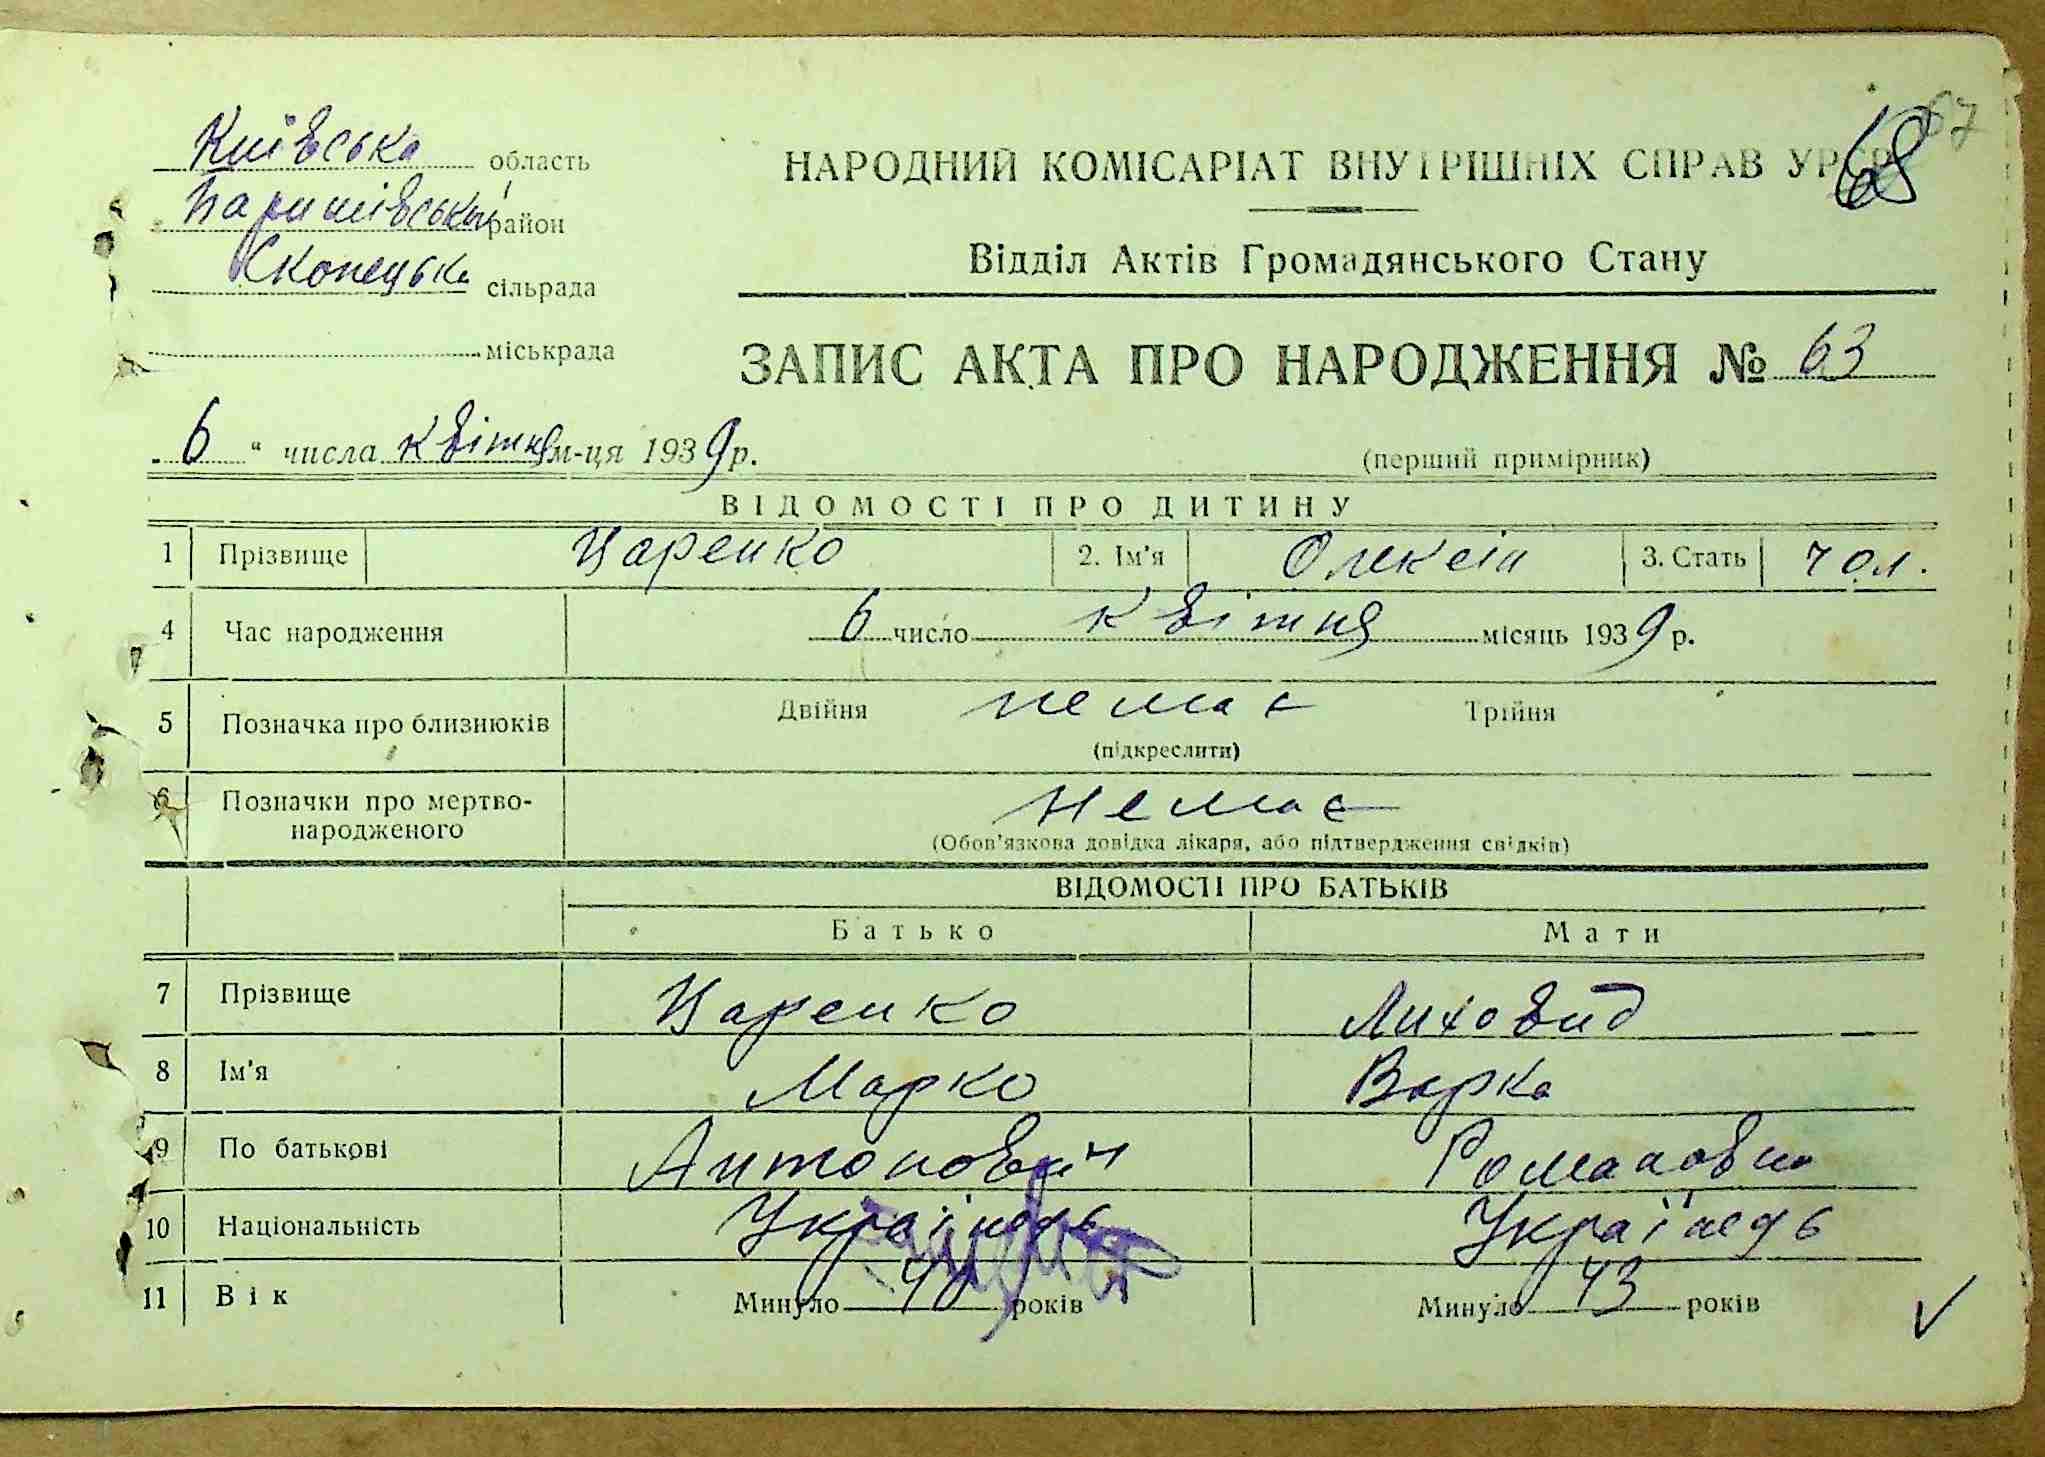 68 67
Київська область
Баришівський район
Скопецька сільрада
міськрада
НАРОДНИЙ КОМІСАРІАТ ВНУТРІШНІХ СПРАВ УРСР
Відділ Актів Громадянського Стану
ЗАПИС АКТА ПРО НАРОДЖЕННЯ № 63
6 " числа квітня м-ця 1939 р.
(перший примірник)
ВІДОМОСТІ ПРО ДИТИНУ
1 Прізвище Царенко 2. Ім'я Олексій 3. Стать чол.
4 Час народження 6 число квітня місяць 1939 р.
5 Позначка про близнюків Двійня немає Трійня
(підкреслити)
6 Позначки про мертво-
народженого немає
(Обов'язкова довідка лікаря, або підтвердження свідків)
ВІДОМОСТІ ПРО БАТЬКІВ
Батько Мати
7 Прізвище Царенко Лиховид
8 Ім'я Марко Варка
9 По батькові Антонович Романовна
10 Національність Українець Українець
11 Вік Минуло 40 років Минуло 43 років